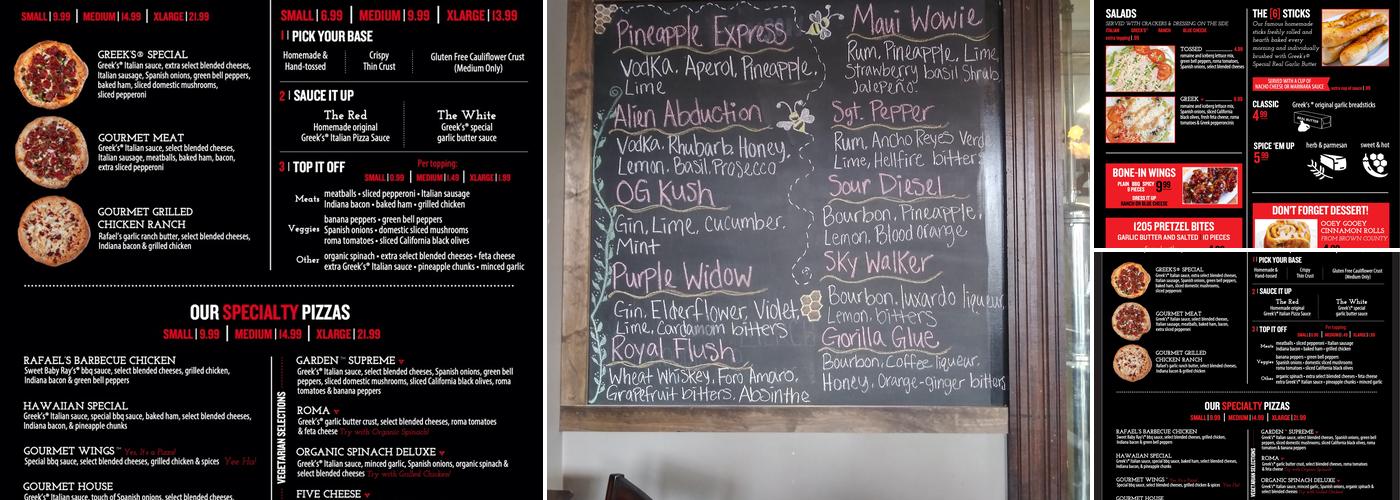 SMALL|9.99 | MEDIUM|14.99 | XLARGE|21.99
GREEK'S® SPECIAL
Greek's® Italian sauce, extra select blended cheeses,
Italian sausage, Spanish onions, green bell peppers,
baked ham, sliced domestic mushrooms,
sliced pepperoni
GOURMET MEAT
Greek's® Italian sauce, select blended cheeses,
Italian sausage, meatballs, baked ham, bacon,
extra sliced pepperoni
GOURMET GRILLED
CHICKEN RANCH
Rafael's garlic ranch butter, select blended cheeses,
Indiana bacon & grilled chicken
SMALL|6.99 | MEDIUM|9.99 | XLARGE|13.99
1 | PICK YOUR BASE
Homemade &
Hand-tossed
Crispy
Thin Crust
Gluten Free Cauliflower Crust
(Medium Only)
2 | SAUCE IT UP
The Red
Homemade original
Greek's® Italian Pizza Sauce
The White
Greek's® special
garlic butter sauce
3 | TOP IT OFF
Per topping:
SMALL|0.99 | MEDIUM|1.49 | XLARGE|1.99
Meats
meatballs • sliced pepperoni • Italian sausage
Indiana bacon • baked ham • grilled chicken
Veggies
banana peppers • green bell peppers
Spanish onions • domestic sliced mushrooms
roma tomatoes • sliced California black olives
Other
organic spinach • extra select blended cheeses • feta cheese
extra Greek's® Italian sauce • pineapple chunks • minced garlic
OUR SPECIALTY PIZZAS
SMALL|9.99 | MEDIUM|14.99 | XLARGE|21.99
RAFAEL'S BARBECUE CHICKEN
Sweet Baby Ray's® bbq sauce, select blended cheeses, grilled chicken,
Indiana bacon & green bell peppers
HAWAIIAN SPECIAL
Greek's® Italian sauce, special bbq sauce, baked ham, select blended cheeses,
Indiana bacon, & pineapple chunks
GOURMET WINGS™ Yes, It's a Pizza!
Special bbq sauce, select blended cheeses, grilled chicken & spices Yee Ha!
GOURMET HOUSE
Greek's® Italian sauce, touch of Spanish onions, select blended cheeses,
VEGETARIAN SELECTIONS
GARDEN™ SUPREME
Greek's® Italian sauce, select blended cheeses, Spanish onions, green bell
peppers, sliced domestic mushrooms, sliced California black olives, roma
tomatoes & banana peppers
ROMA
Greek's® garlic butter crust, select blended cheeses, roma tomatoes
& feta cheese Try with Organic Spinach!
ORGANIC SPINACH DELUXE
Greek's® Italian sauce, minced garlic, Spanish onions, organic spinach &
select blended cheeses Try with Grilled Chicken!
FIVE CHEESE
Pineapple Express
Vodka, Aperol, Pineapple,
Lime
Alien Abduction
Vodka, Rhubarb, Honey,
Lemon, Basil, Prosecco
OG Kush
Gin, Lime, Cucumber,
Mint
Purple Widow
Gin, Elderflower, Violet,
Lime, Cardamom bitters
Royal Flush
Wheat Whiskey, Foro Amaro,
Grapefruit bitters, Absinthe
Maui Wowie
Rum, Pineapple, Lime,
Strawberry basil Shrub,
Jalepeño
Sgt. Pepper
Rum, Ancho Reyes Verde
Lime, Hellfire bitters
Sour Diesel
Bourbon, Pineapple,
Lemon, Blood Orange
Sky Walker
Bourbon, luxardo liqueur,
Lemon, bitters
Gorilla Glue
Bourbon, Coffee liqueur,
Honey, Orange-ginger bitters
SALADS
SERVED WITH CRACKERS & DRESSING ON THE SIDE
ITALIAN GREEK'S® RANCH BLUE CHEESE
extra topping | .99
TOSSED 4.99
romaine and iceberg lettuce mix,
green bell peppers, roma tomatoes,
Spanish onions, select blended cheeses
GREEK 6.99
romaine and iceberg lettuce mix,
Spanish onions, sliced California
black olives, feta cheese, roma
tomatoes & Greek pepperoncinis
BONE-IN WINGS
PLAIN BBQ SPICY
9 PIECES
9.99
DRESS IT UP
RANCH OR BLUE CHEESE
1205 PRETZEL BITES
GARLIC BUTTER AND SALTED | 10 PIECES
THE [6] STICKS
Our famous homemade
sticks freshly rolled and
hearth baked every
morning and individually
brushed with Greek's®
Special Real Garlic Butter
SERVED WITH A CUP OF
NACHO CHEESE OR MARINARA SAUCE
extra cup of sauce | .99
CLASSIC
4.99
Greek's® original garlic breadsticks
REAL BUTTER
SPICE 'EM UP
5.99
herb & parmesan
sweet & hot
DON'T FORGET DESSERT!
OOEY GOOEY
CINNAMON ROLLS
FROM BROWN COUNTY
GREEK'S® SPECIAL
Greek's® Italian sauce, extra select blended cheeses,
Italian sausage, Spanish onions, green bell peppers,
baked ham, sliced domestic mushrooms,
sliced pepperoni
GOURMET MEAT
Greek's® Italian sauce, select blended cheeses,
Italian sausage, meatballs, baked ham, bacon,
extra sliced pepperoni
GOURMET GRILLED
CHICKEN RANCH
Rafael's garlic ranch butter, select blended cheeses,
Indiana bacon & grilled chicken
1 | PICK YOUR BASE
Homemade &
Hand-tossed
Crispy
Thin Crust
Gluten Free Cauliflower Crust
(Medium Only)
2 | SAUCE IT UP
The Red
Homemade original
Greek's® Italian Pizza Sauce
The White
Greek's® special
garlic butter sauce
3 | TOP IT OFF
Per topping:
SMALL|0.99 | MEDIUM|1.49 | XLARGE|1.99
Meats
meatballs • sliced pepperoni • Italian sausage
Indiana bacon • baked ham • grilled chicken
Veggies
banana peppers • green bell peppers
Spanish onions • domestic sliced mushrooms
roma tomatoes • sliced California black olives
Other
organic spinach • extra select blended cheeses • feta cheese
extra Greek's® Italian sauce • pineapple chunks • minced garlic
OUR SPECIALTY PIZZAS
SMALL|9.99 | MEDIUM|14.99 | XLARGE|21.99
RAFAEL'S BARBECUE CHICKEN
Sweet Baby Ray's® bbq sauce, select blended cheeses, grilled chicken,
Indiana bacon & green bell peppers
HAWAIIAN SPECIAL
Greek's® Italian sauce, special bbq sauce, baked ham, select blended cheeses,
Indiana bacon, & pineapple chunks
GOURMET WINGS™
Special bbq sauce, select blended cheeses, grilled chicken & spices
GOURMET HOUSE
VEGETARIAN SELECTIONS
GARDEN™ SUPREME
Greek's® Italian sauce, select blended cheeses, Spanish onions, green bell
peppers, sliced domestic mushrooms, sliced California black olives, roma
tomatoes & banana peppers
ROMA
Greek's® garlic butter crust, select blended cheeses, roma tomatoes
& feta cheese
ORGANIC SPINACH DELUXE
Greek's® Italian sauce, minced garlic, Spanish onions, organic spinach &